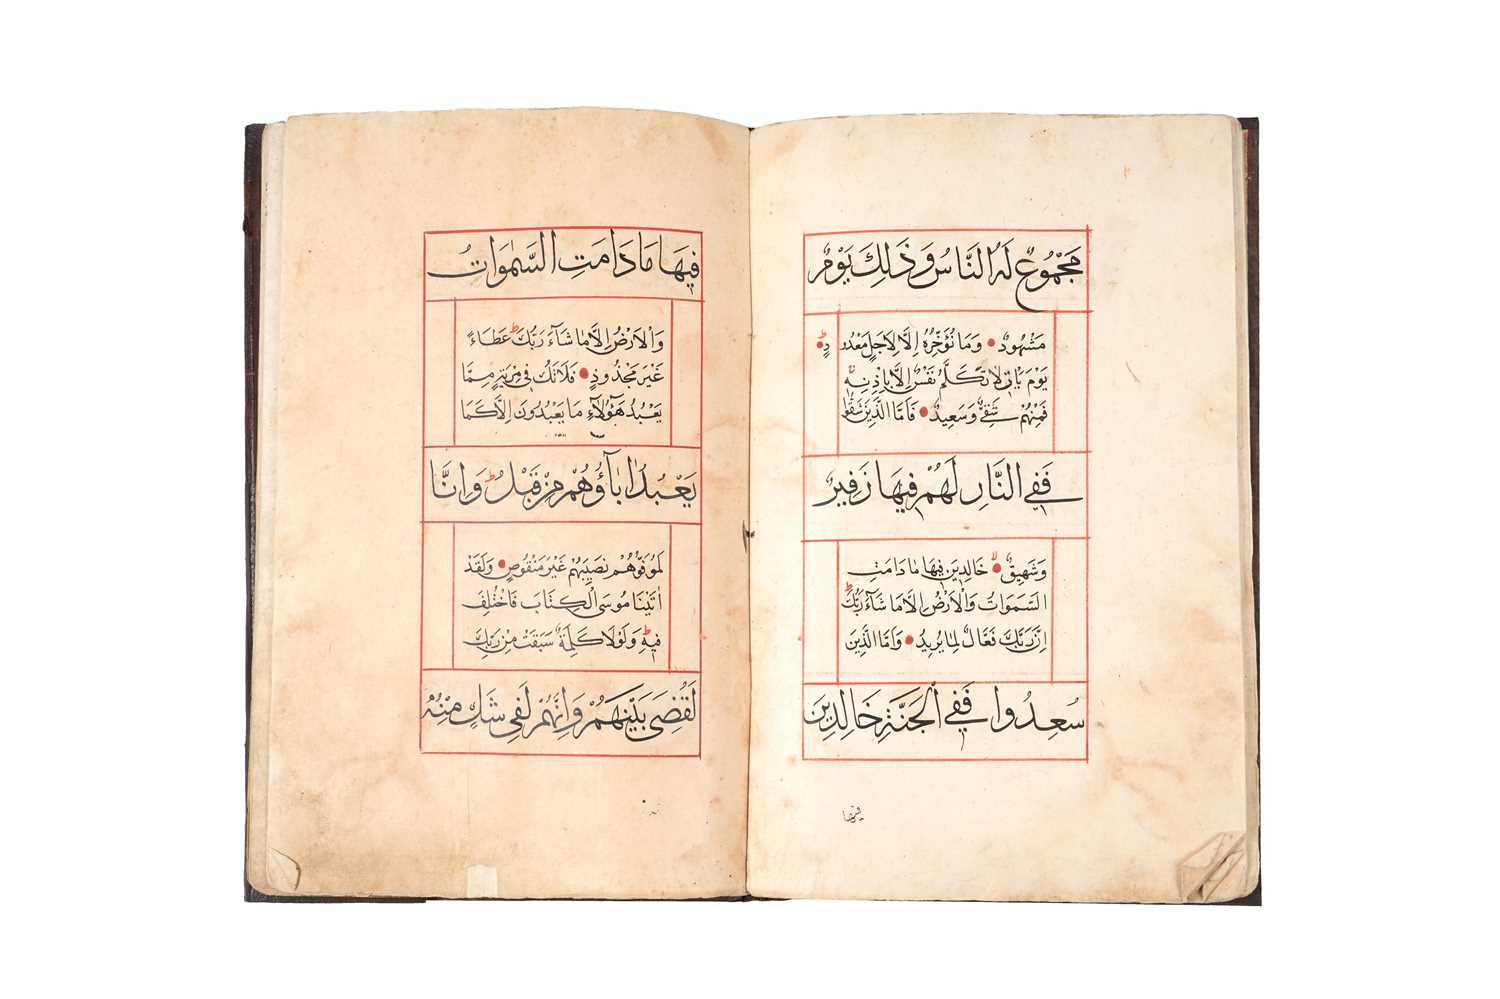 مَجْمُوعٌ لَهُ النَّاسُ وَذَلِكَ يَوْمٌ
مَشْهُودٌ وَمَا نُؤَخِّرُهُ اِلَّا لِاَجَلٍ مَعْدُودٍ
يَوْمَ يَاْتِ لَا تَكَلَّمُ نَفْسٌ اِلَّا بِاِذْنِهِ
فَمِنْهُمْ شَقِيٌّ وَسَعِيدٌ فَاَمَّا الَّذِينَ شَقُوا
فَفِي النَّارِ لَهُمْ فِيهَا زَفِيرٌ
وَشَهِيقٌ خَالِدِينَ فِيهَا مَا دَامَتِ
السَّمَوَاتُ وَالْاَرْضُ اِلَّا مَا شَآءَ رَبُّكَ
اِنَّ رَبَّكَ فَعَّالٌ لِمَا يُرِيدُ وَاَمَّا الَّذِينَ
سُعِدُوا فَفِي الْجَنَّةِ خَالِدِينَ
فيها
فِيهَا مَا دَامَتِ السَّمٰوَاتُ
وَالْاَرْضُ اِلَّا مَا شَآءَ رَبُّكَ عَطَاءً
غَيْرَ مَجْذُوذٍ فَلَا تَكُ فِي مِرْيَةٍ مِمَّا
يَعْبُدُ هَؤُلَآءِ مَا يَعْبُدُونَ اِلَّا كَمَا
يَعْبُدُ اٰبَآؤُهُمْ مِنْ قَبْلُ وَاِنَّا
لَمُوَفُّوهُمْ نَصِيبَهُمْ غَيْرَ مَنْقُوصٍ وَلَقَدْ
اٰتَيْنَا مُوسَى الْكِتَابَ فَاخْتُلِفَ
فِيهِ وَلَوْلَا كَلِمَةٌ سَبَقَتْ مِنْ رَبِّكَ
لَقُضِيَ بَيْنَهُمْ وَاِنَّهُمْ لَفِي شَكٍّ مِنْهُ